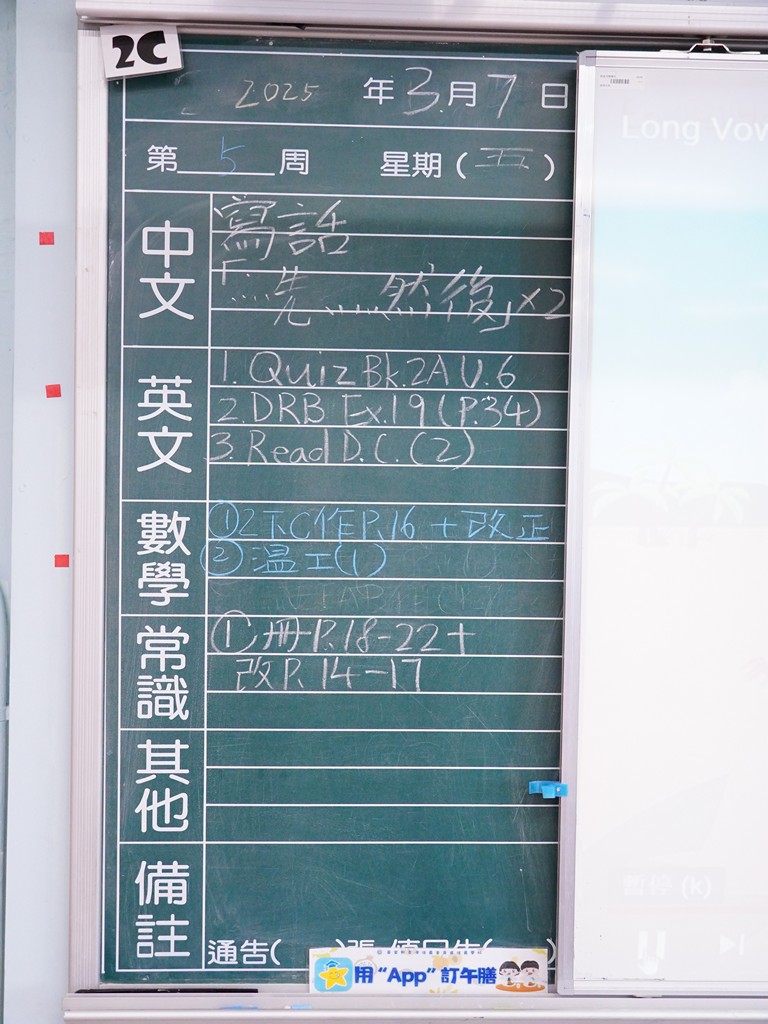 2C
2025 年 3 月 7 日
第 5 周 星期 ( 五 )
中文
寫話
「……先……然後」×2
英文
1. Quiz Bk.2A U.6
2. DRB Ex.19 (P.34)
3. Read D.C. (2)
數學
①2下C作P.16 + 改正
② 溫工(1)
常識
① 冊P.18-22+
改P. 14-17
其他
備註
通告(
用 “App” 訂午膳
Long Vow
暫停 (k)